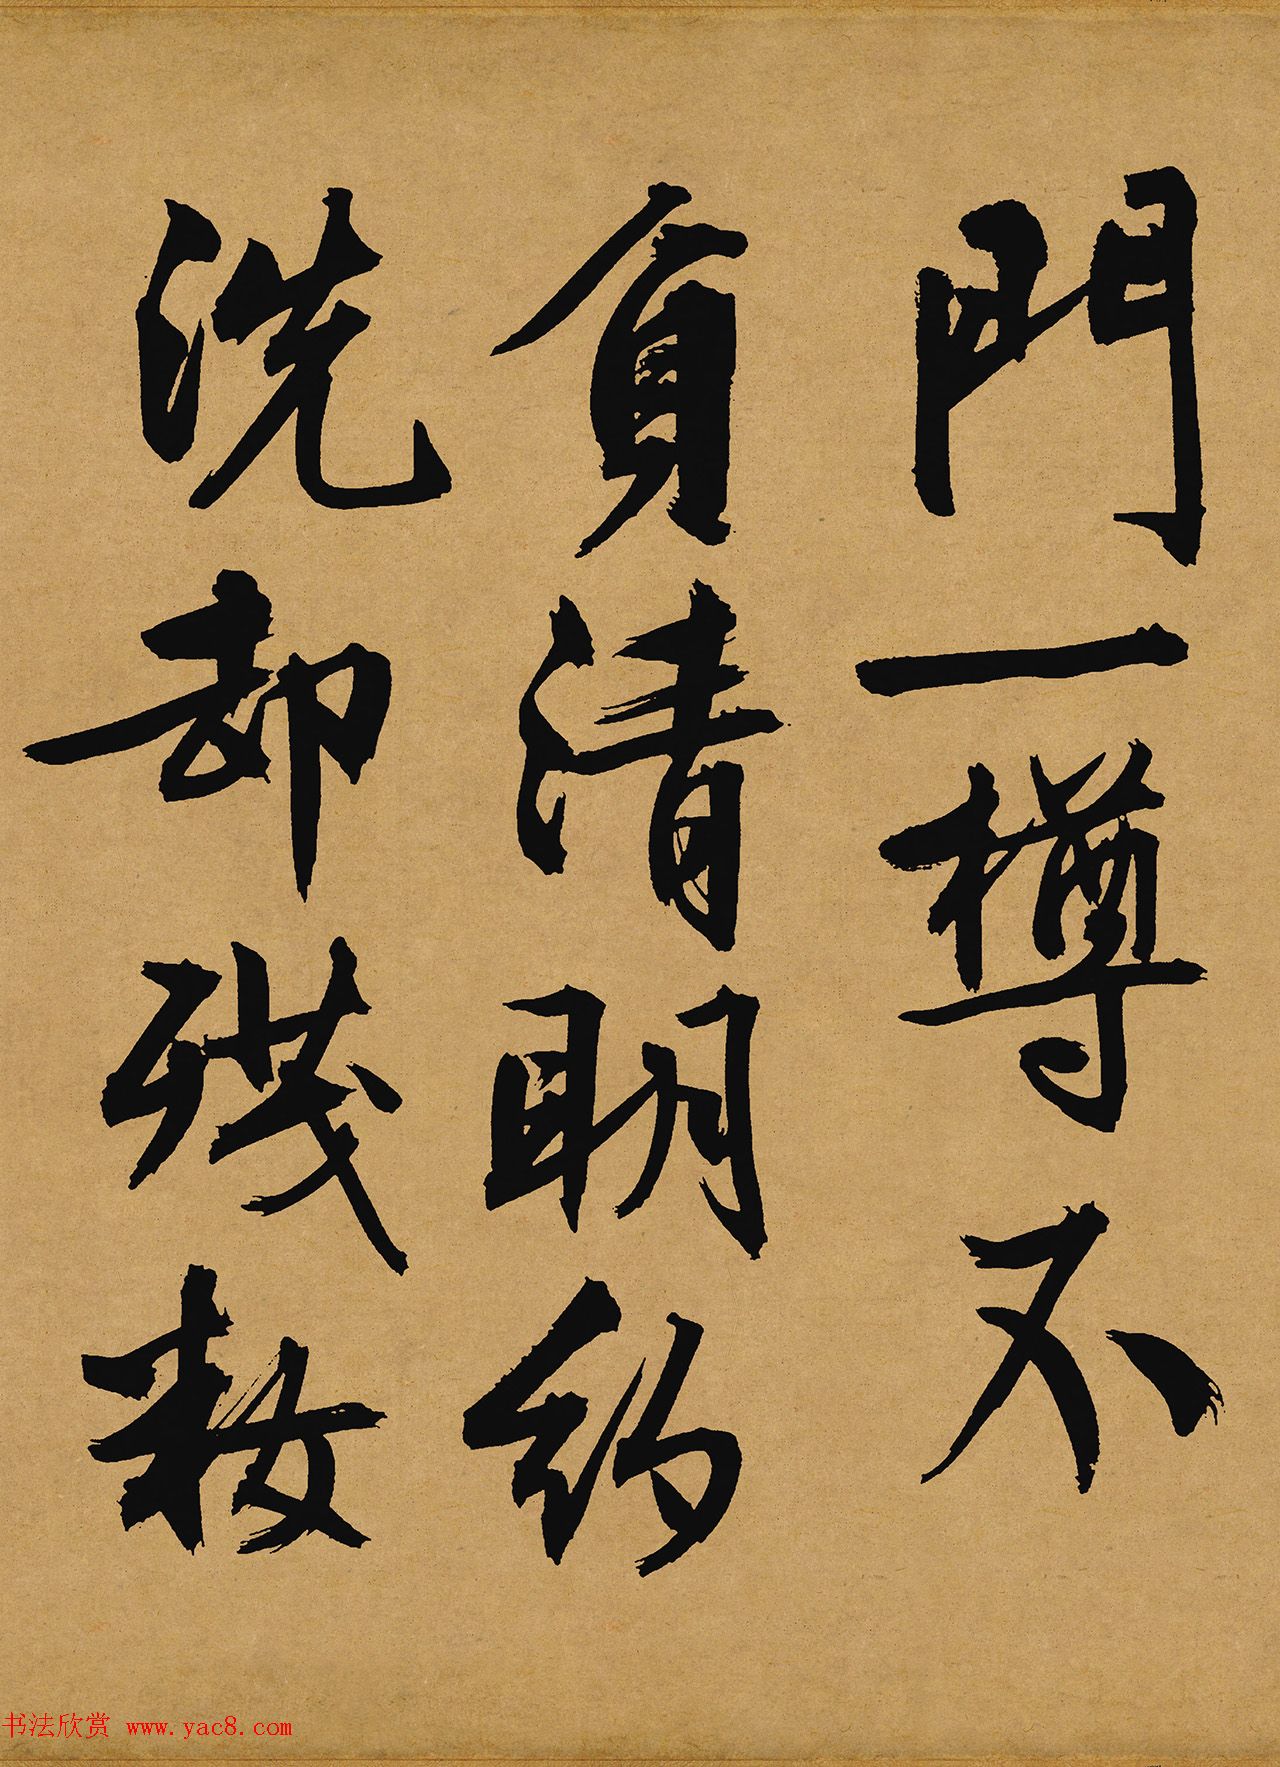 門一樽不
負清明約
洗却殘妝
书法欣赏 www.yac8.com